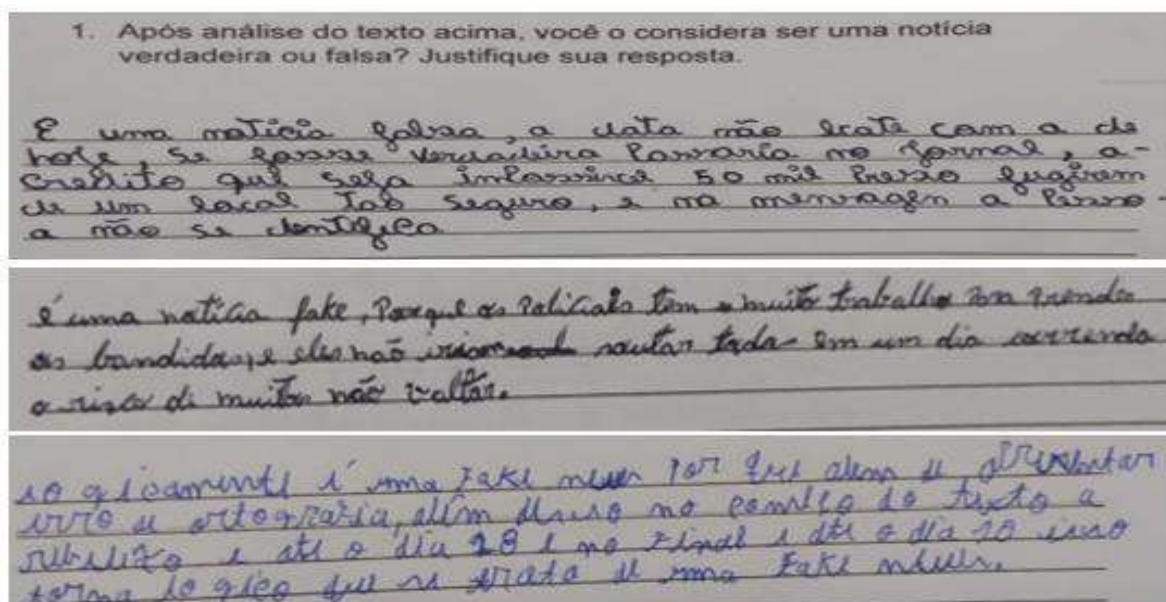 1. Após análise do texto acima, você o considera ser uma notícia
verdadeira ou falsa? Justifique sua resposta.
É uma notícia falsa, a data não bate com a de
hoje, se fosse verdadeira Passaria no jornal, a-
credito que seja 50 mil Preso fugirem
de um local Tão seguro, e na mensagem a Pesso-
a não se dentifica
é uma notícia fake, Porque os Policiais tem muito trabalho pra prender
os bandidos, e eles não soutar todos em um dia correndo
o risco di muitos não voltar.
logicamente é uma Fake news Por que alem de apresentar
erro de ortografia, além disso no começo do texto a
e até o dia 28 e no Final e até o dia 20 isso
torna logico que se trata de uma Fake news.